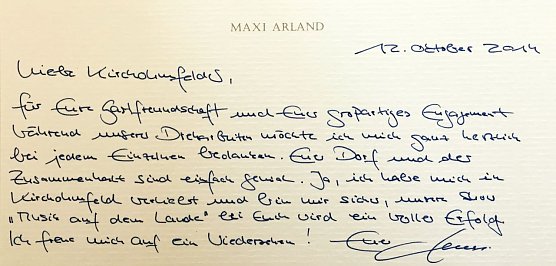 MAXI ARLAND
12. Oktober 2014
Liebe Kirchohmfelder,
für Eure Gastfreundschaft und Euer großartiges Engagement
während unserer Dreharbeiten möchte ich mich ganz herzlich
bei jedem Einzelnen bedanken. Euer Dorf und der
Zusammenhalt sind einfach genial. Ja, ich habe mich in
Kirchohmfeld verliebt und bin mir sicher, unsere Show
„Musik auf dem Lande" bei Euch wird ein voller Erfolg!
Ich freue mich auf ein Wiedersehen! Euer